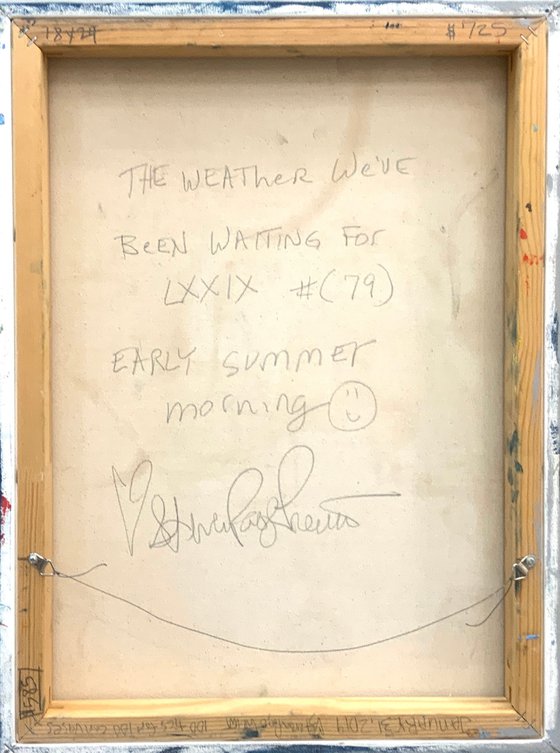 18x24
$725
THE WEATHER WE'VE
BEEN WAITING FOR
LXXIX #(79)
EARLY SUMMER
MORNING
JANUARY 31, 2011